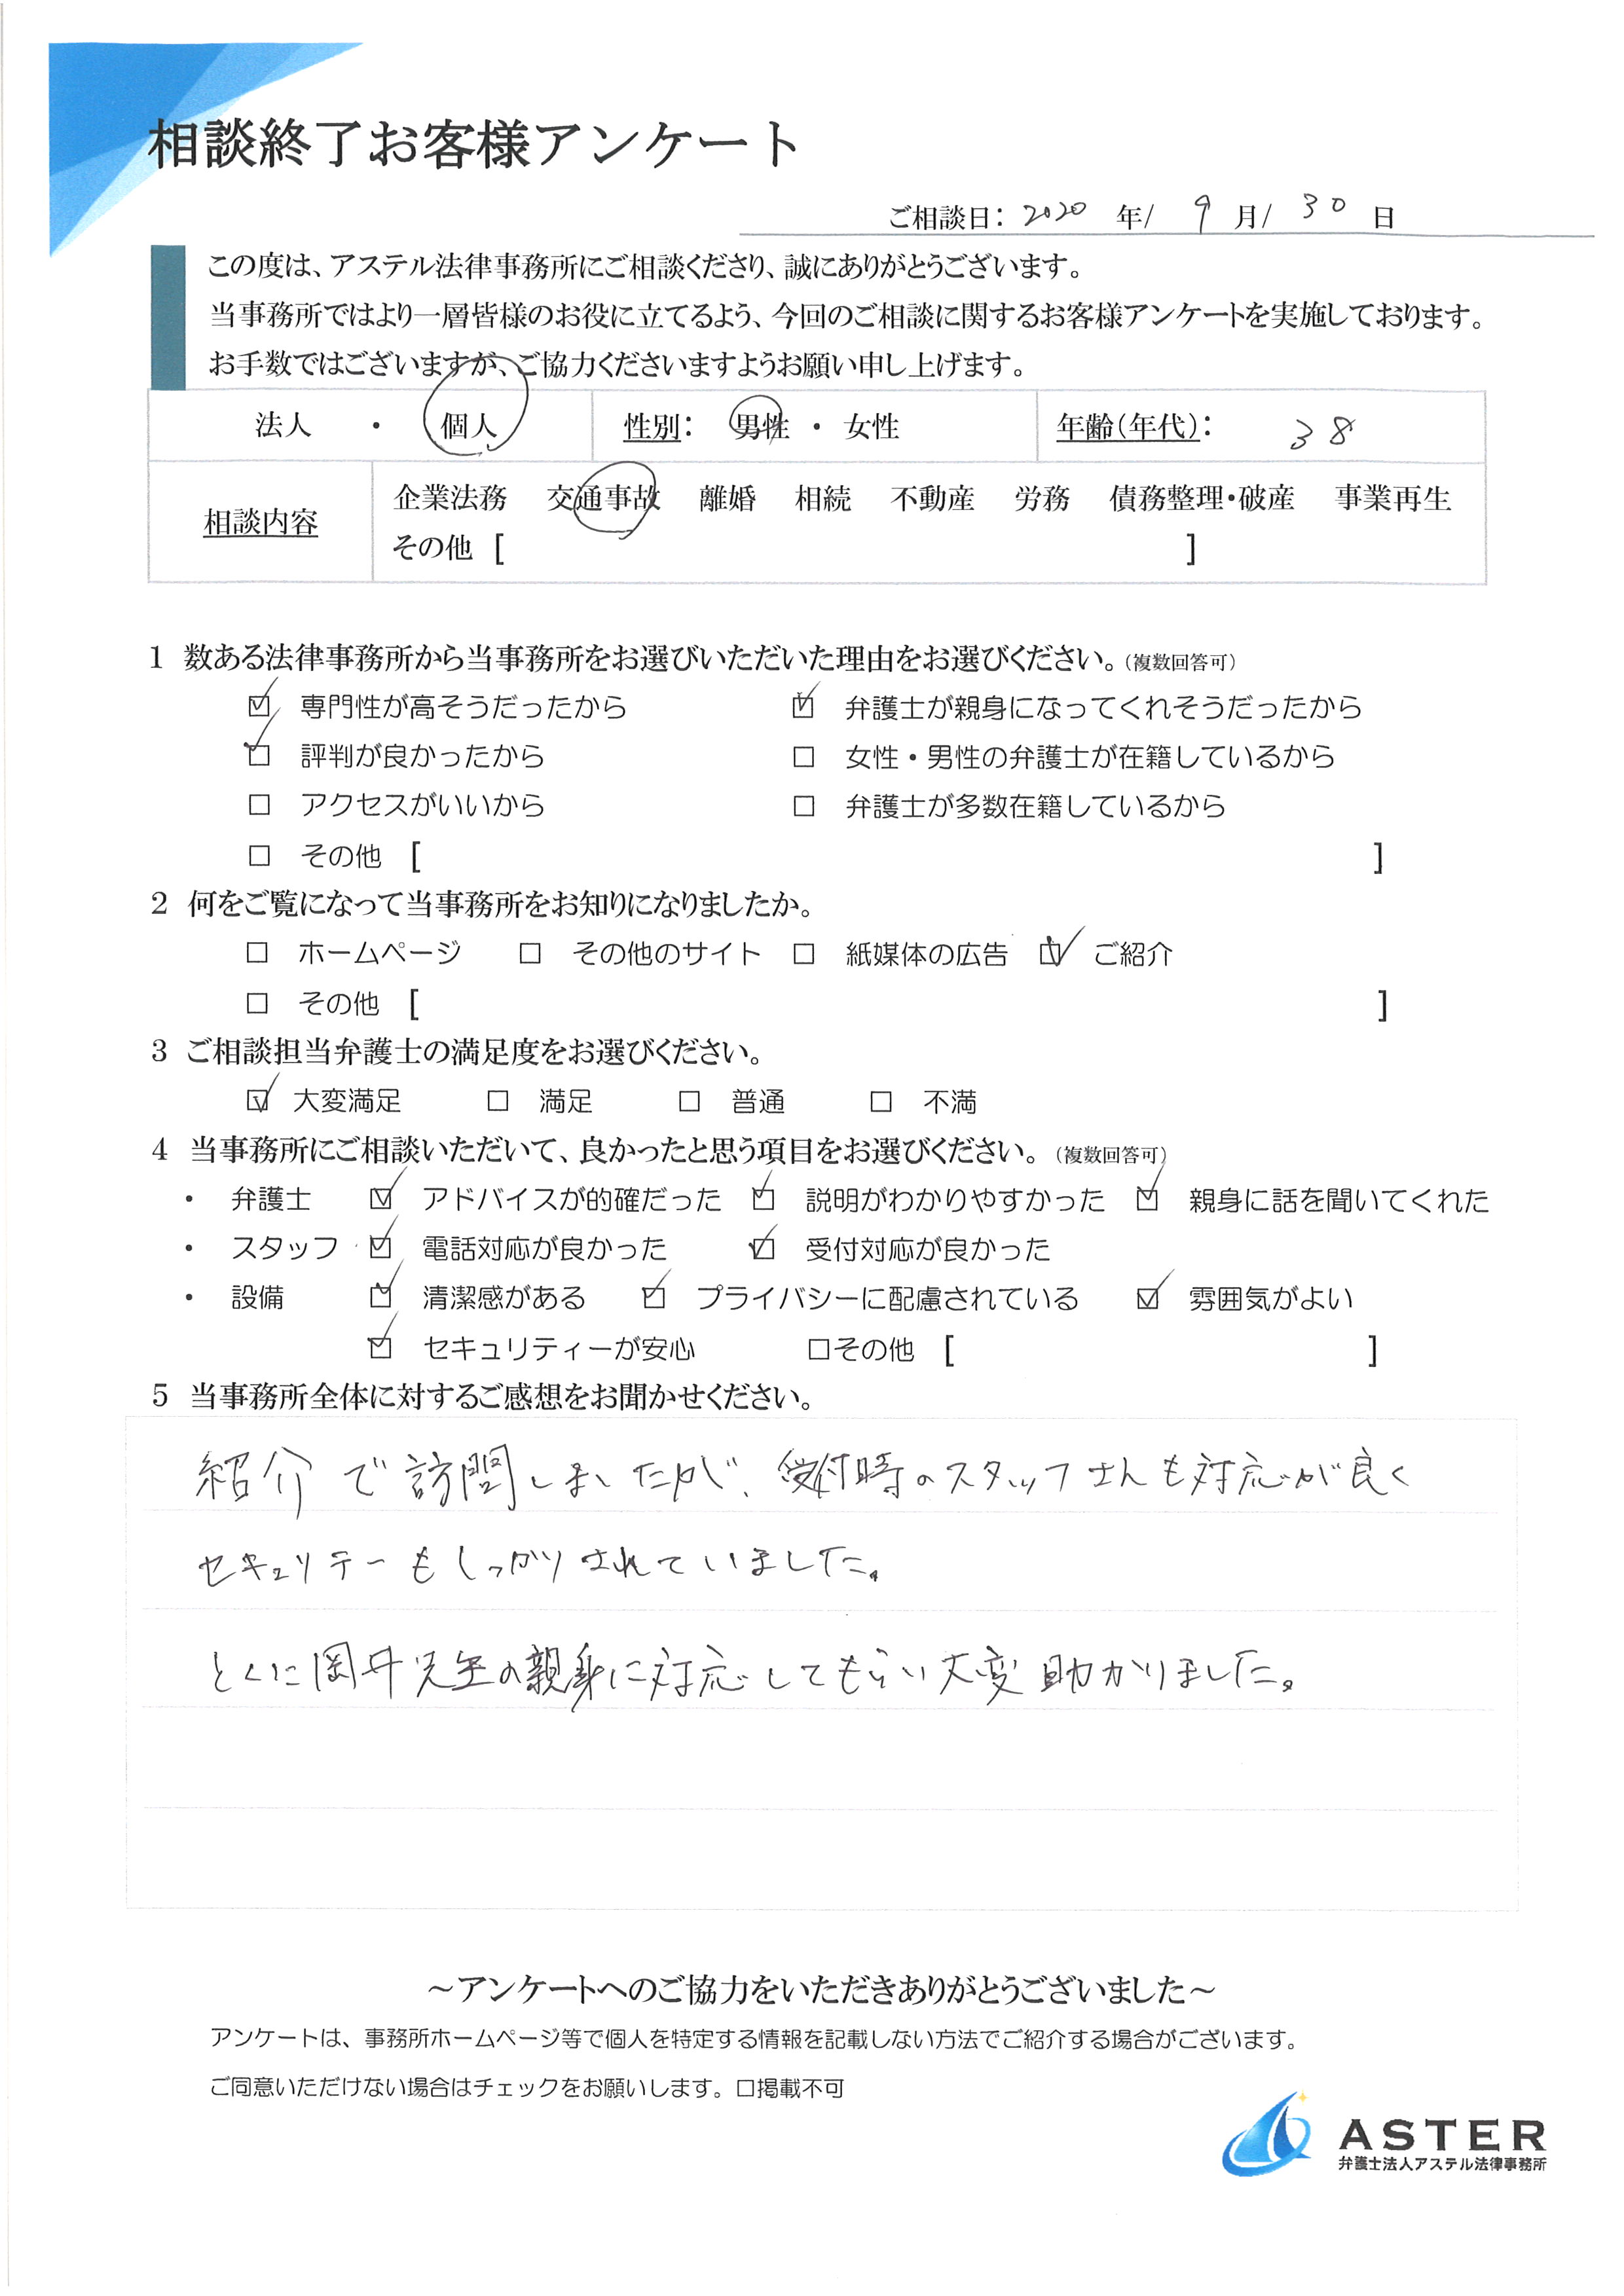 相談終了お客様アンケート
ご相談日： 2020 年/ 9 月/ 30 日
この度は、アステル法律事務所にご相談くださり、誠にありがとうございます。
当事務所ではより一層皆様のお役に立てるよう、今回のご相談に関するお客様アンケートを実施しております。
お手数ではございますが、ご協力くださいますようお願い申し上げます。
法人 ・ 個人 性別： 男性 ・ 女性 年齢（年代）： 38
相談内容 企業法務 交通事故 離婚 相続 不動産 労務 債務整理・破産 事業再生
その他 [ ]
1 数ある法律事務所から当事務所をお選びいただいた理由をお選びください。（複数回答可）
☑ 専門性が高そうだったから ☑ 弁護士が親身になってくれそうだったから
☑ 評判が良かったから □ 女性・男性の弁護士が在籍しているから
□ アクセスがいいから □ 弁護士が多数在籍しているから
□ その他 [ ]
2 何をご覧になって当事務所をお知りになりましたか。
□ ホームページ □ その他のサイト □ 紙媒体の広告 ☑ ご紹介
□ その他 [ ]
3 ご相談担当弁護士の満足度をお選びください。
☑ 大変満足 □ 満足 □ 普通 □ 不満
4 当事務所にご相談いただいて、良かったと思う項目をお選びください。（複数回答可）
・ 弁護士 ☑ アドバイスが的確だった ☑ 説明がわかりやすかった ☑ 親身に話を聞いてくれた
・ スタッフ ☑ 電話対応が良かった ☑ 受付対応が良かった
・ 設備 ☑ 清潔感がある ☑ プライバシーに配慮されている ☑ 雰囲気がよい
☑ セキュリティーが安心 □その他 [ ]
5 当事務所全体に対するご感想をお聞かせください。
紹介で訪問しましたが、受付時のスタッフさんも対応が良く
セキュリテーもしっかりされていました。
とくに岡井先生の親身に対応してもらい大変助かりました。
～アンケートへのご協力をいただきありがとうございました～
アンケートは、事務所ホームページ等で個人を特定する情報を記載しない方法でご紹介する場合がございます。
ご同意いただけない場合はチェックをお願いします。□掲載不可
ASTER
弁護士法人アステル法律事務所